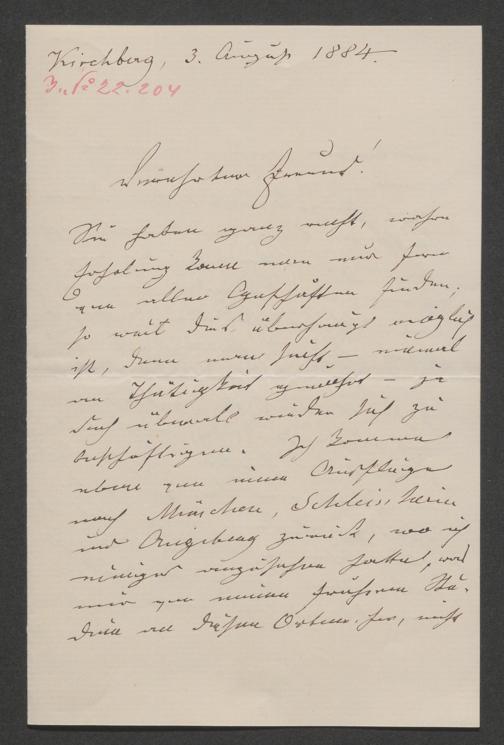 Kirchberg, 3. August 1884.
J. No 22.204
Verehrter Freund!
Sie haben ganz recht, wahre
Erholung kann man nur fern
von allen Geschäften finden,
so weit dies überhaupt möglich
ist, denn man sucht – einmal
an Thätigkeit gewöhnt – ja
doch überall wieder sich zu
beschäftigen. Ich komme
eben von einem Ausfluge
nach München, Schleissheim
und Augsburg zurück, wo ich
einiges anzusehen hatte, was
mir von meinen früheren Stu-
dien an diesen Orten her, nicht